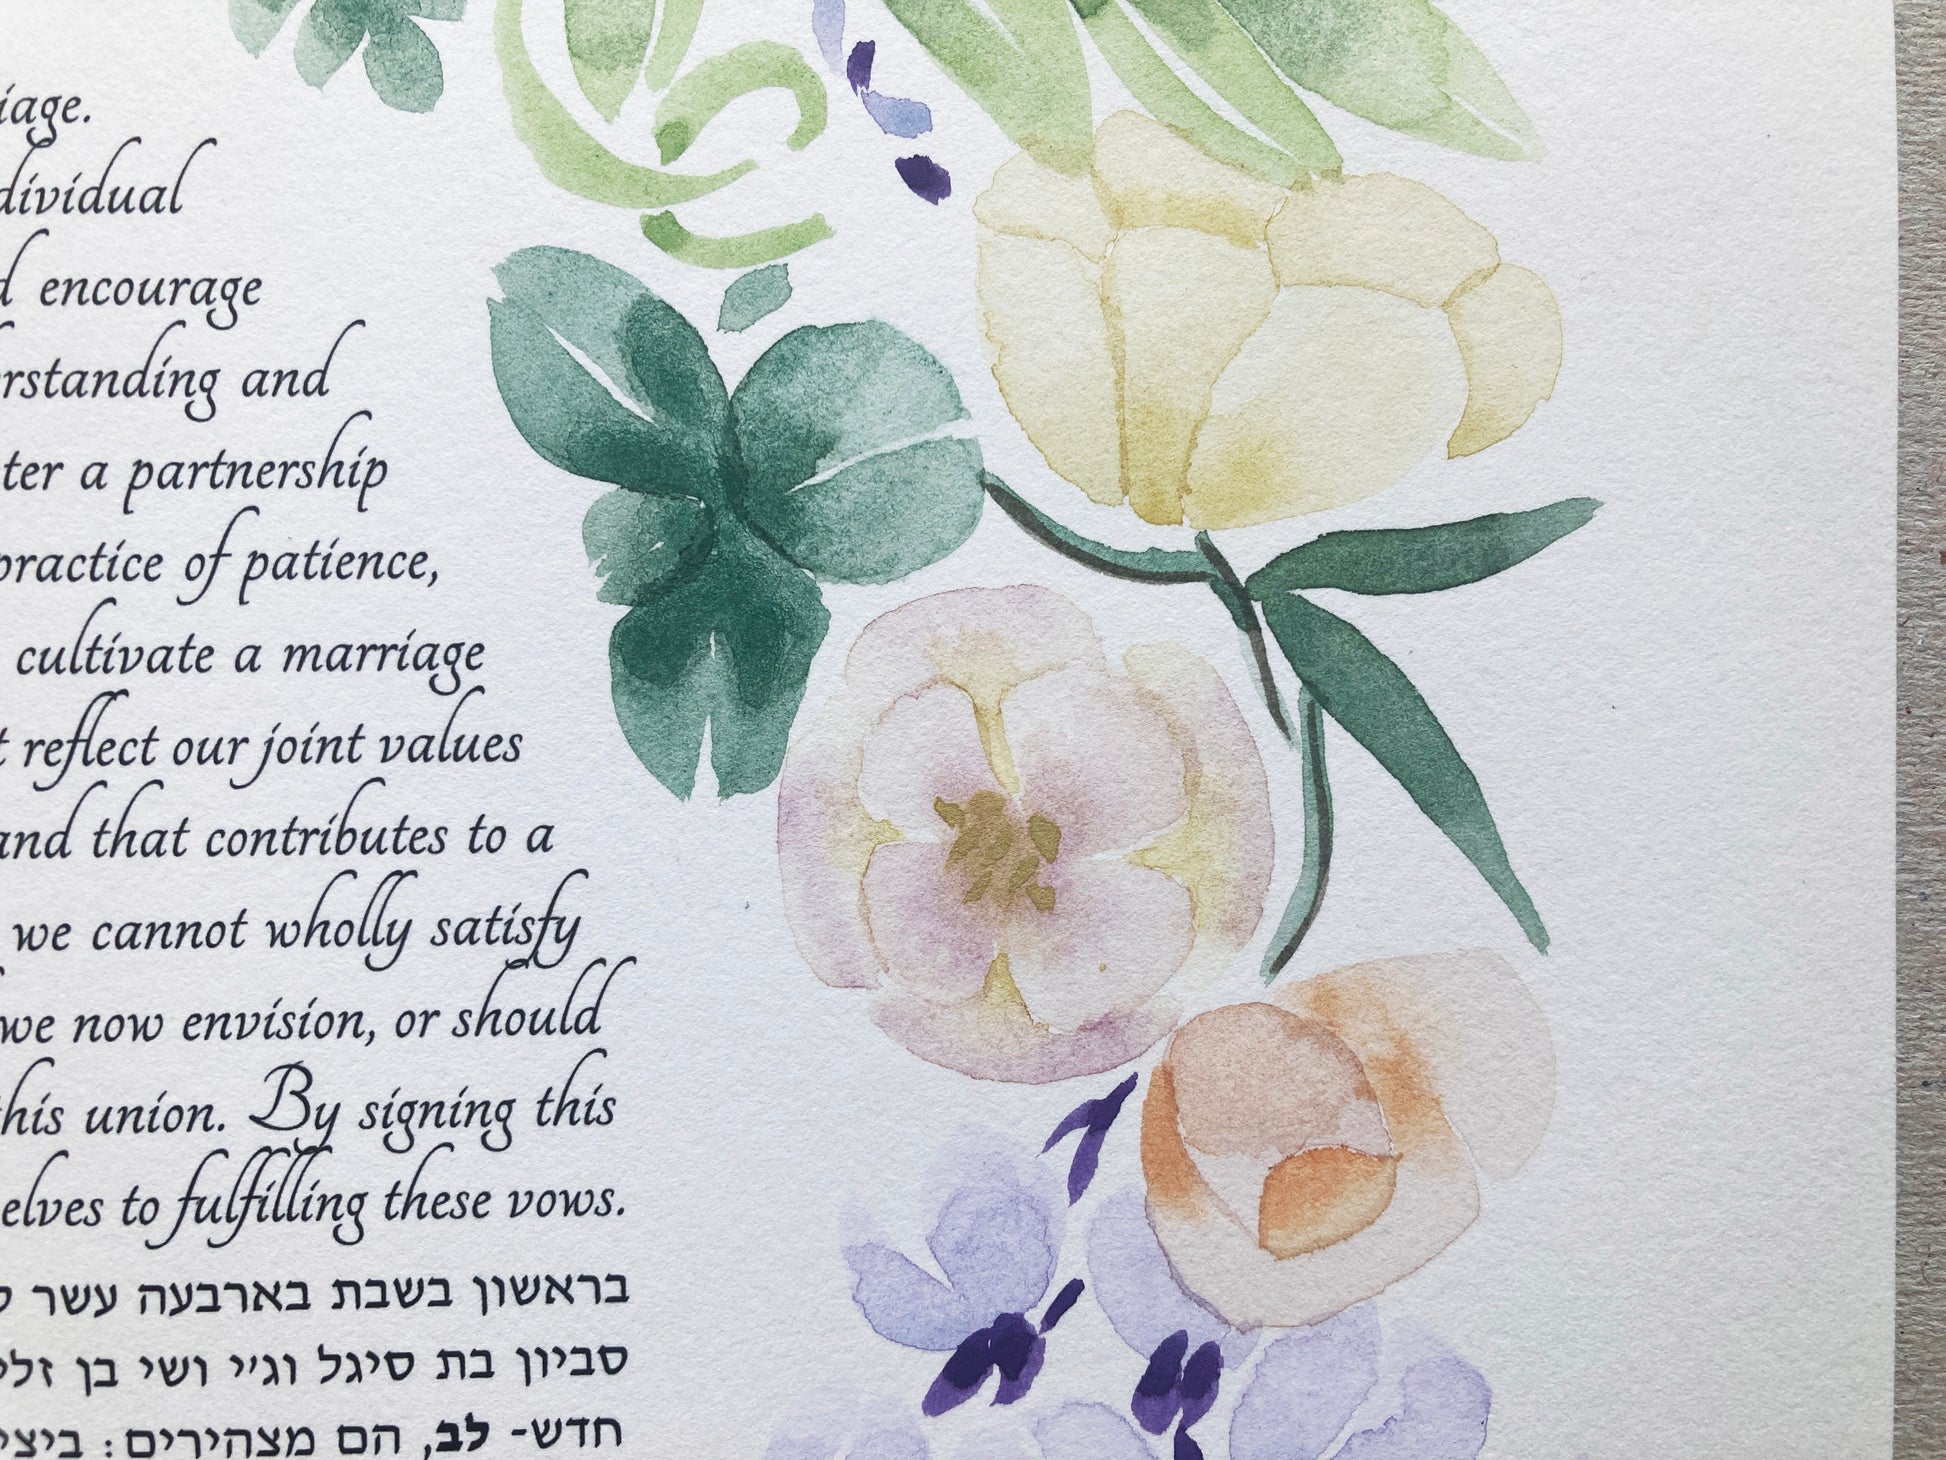 iage.
dividual
d encourage
erstanding and
ter a partnership
practice of patience,
cultivate a marriage
t reflect our joint values
and that contributes to a
we cannot wholly satisfy
we now envision, or should
this union. By signing this
elves to fulfilling these vows.
בראשון בשבת בארבעה עשר
סביון בת סיגל וג׳י ושי בן זלי
חדש- לב, הם מצהירים: ביצי